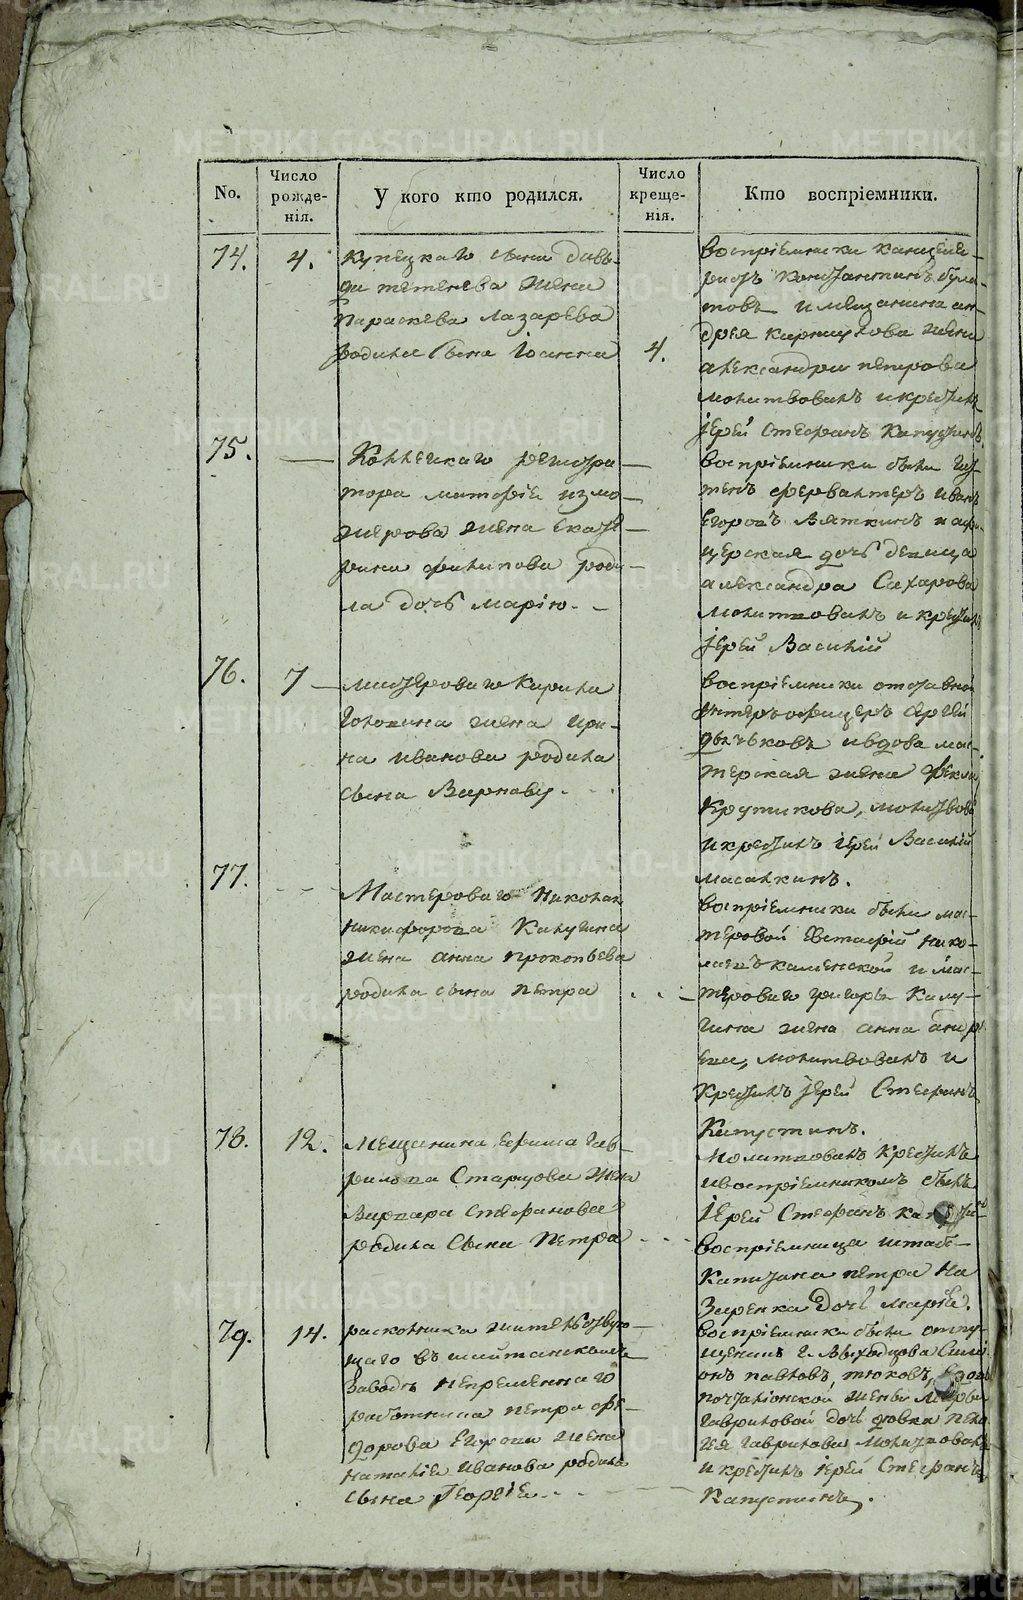 No.
Число рожденія.
У кого кто родился.
Число крещенія.
Кто воспріемники.
74.
4.
купецкаго сына давы-
да тетенева жена
параскева лазарева
родила сына Іоанна
4.
воспріемники канцеля-
ристъ Константинъ була-
товъ и мещанина ан-
дрея жена
александра петрова
молитвовалъ и крестилъ
іерей Стефанъ Капустинъ
75.
Коллежскаго регистра-
тора
жена екате-
рина филипова роди-
ла дочь марію.
воспріемники были
иванъ
Егоровъ Вяткинъ и
дочь девица
александра Сахарова
молитвовалъ и крестилъ
іерей Василій
76.
7
мастероваго Кирила
Головина жена ири-
на иванова родила
сына Варнаву.
воспріемники отставной
унтеръ офицеръ Сергей
дьячковъ и вдова мас-
терская жена Фекла
Крутикова, молитвовалъ
и крестилъ іерей Василій
масалкинъ.
77.
Мастероваго Николая
никифорова Калугина
жена анна прокопьева
родила сына петра
воспріемники были мас-
теровой Евстафій нико-
лаевъ каменской и мас-
тероваго григорья Калу-
гина жена анна андр
еева, молитвовалъ и
Крестилъ іерей Стефанъ
Капустинъ.
78.
12.
Мещанина ефима гав-
рилова Старцова жена
Варвара Стефанова
родила Сына Петра
молитвовалъ Крестилъ
и воспріемникомъ былъ
іерей Стефанъ капусти
воспріемница штабъ-
Капитана петра На
заренка дочь марія.
79.
14.
раскольника жительствую-
щаго въ шайтанскомъ
Заводе непременнаго
работника петра фе-
дорова жена
наталіе иванова родила
сына Георгіе
воспріемники были отпу-
щенникъ г. Выходцова Сим-
онъ павловъ тюковъ,
жены марфы
гавриловой дочь девка пела
гея гаврилова молитвовалъ
и крестилъ іерей Стефанъ
Капустинъ.
METRIKI.GASO-URAL.RU